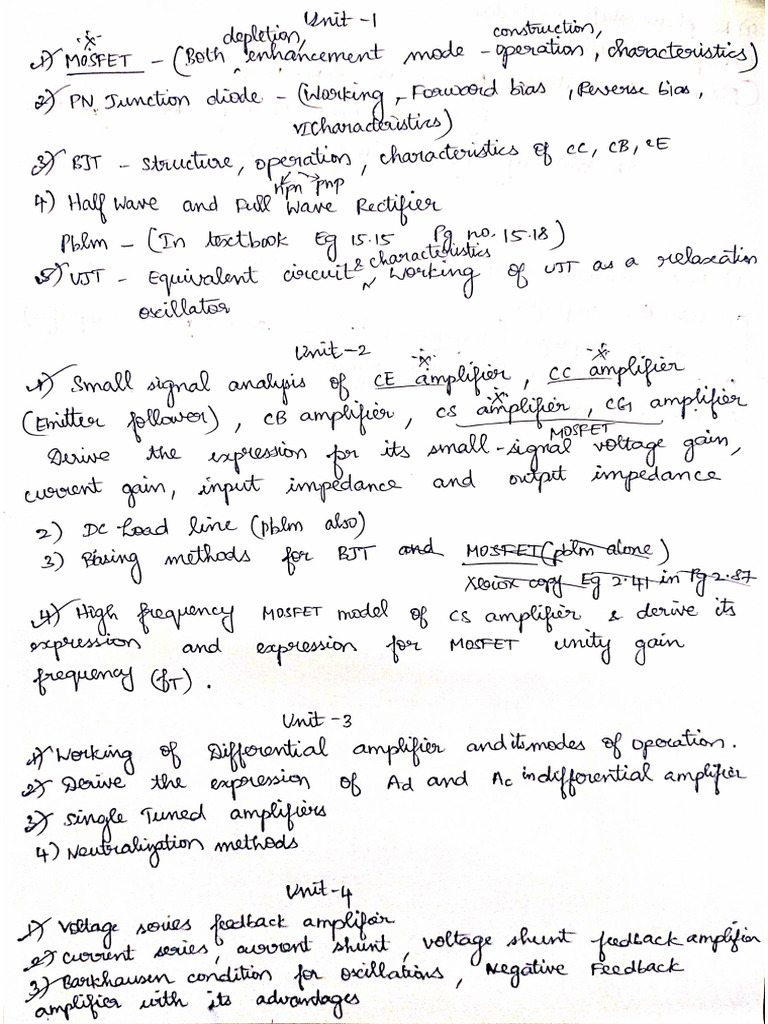 Unit - 1
depletion, construction,
1) MOSFET - (Both enhancement mode - operation, characteristics)
2) PN Junction diode - (Working, Forward bias, Reverse bias,
VI characteristics)
3) BJT - structure, operation, characteristics of CC, CB, CE
npn pnp
4) Half Wave and Full Wave Rectifier
Pblm - (In textbook Eg 15.15 Pg no. 15.18)
& characteristics
5) UJT - Equivalent circuit, Working of UJT as a relaxation
oscillator
Unit - 2
1) Small signal analysis of CE amplifier, CC amplifier
(Emitter follower), CB amplifier, CS amplifier, CG amplifier
MOSFET
Derive the expression for its small-signal voltage gain,
current gain, input impedance and output impedance
2) DC Load line (pblm also)
3) Biasing methods for BJT and MOSFET (pblm alone)
Xerox copy Eg 2.41 in Pg 2.87
4) High frequency MOSFET model of CS amplifier & derive its
expression and expression for MOSFET unity gain
frequency (fT).
Unit - 3
1) Working of Differential amplifier and its modes of operation.
2) Derive the expression of Ad and Ac in differential amplifier
3) Single Tuned amplifiers
4) Neutralization methods
Unit - 4
1) Voltage series feedback amplifier
2) current series, current shunt, voltage shunt feedback amplifier
3) Barkhausen condition for oscillations, Negative Feedback
amplifier with its advantages